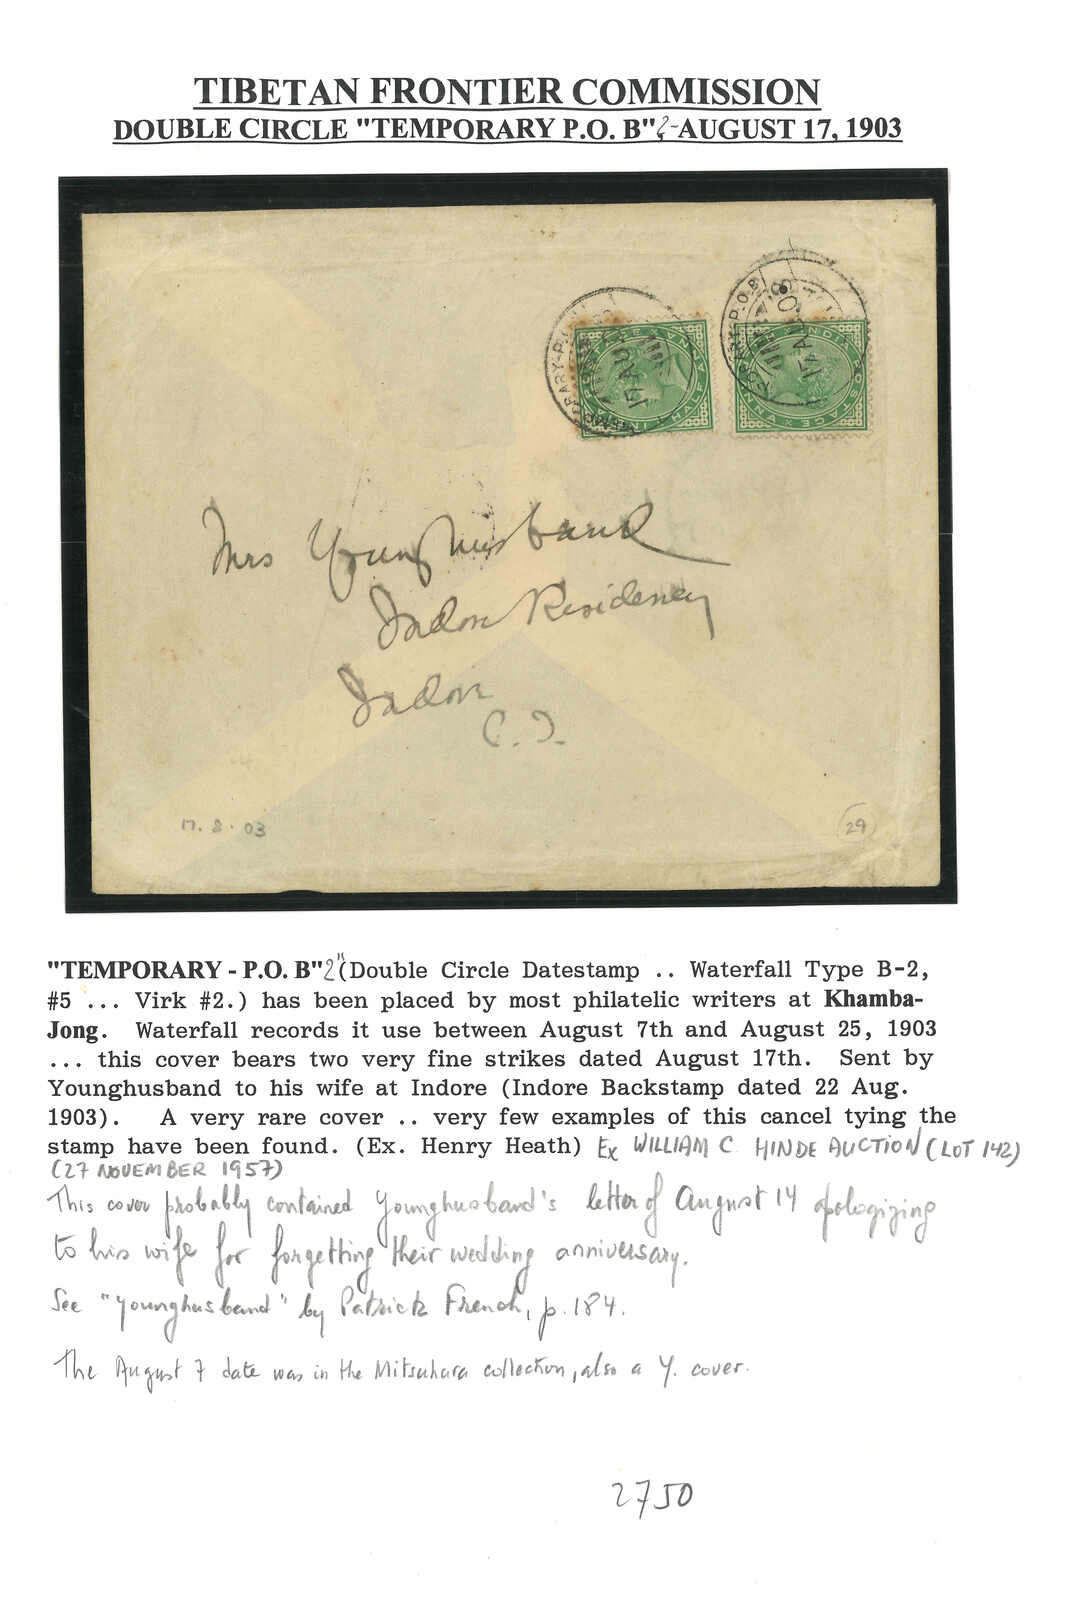 TIBETAN FRONTIER COMMISSION
DOUBLE CIRCLE "TEMPORARY P.O. B"2-AUGUST 17, 1903
TEMPORARY-P.O.
17 AU
INDIA POSTAGE
HALF ANNA
PORARY-P.O.B
17 AU 03
INDIA POSTAGE
HALF ANNA
Mrs Younghusband
Indore Residency
Indore
C. I.
17. 8. 03
29
"TEMPORARY - P.O. B"2"(Double Circle Datestamp .. Waterfall Type B-2,
#5 ... Virk #2.) has been placed by most philatelic writers at Khamba-
Jong. Waterfall records it use between August 7th and August 25, 1903
... this cover bears two very fine strikes dated August 17th. Sent by
Younghusband to his wife at Indore (Indore Backstamp dated 22 Aug.
1903). A very rare cover .. very few examples of this cancel tying the
stamp have been found. (Ex. Henry Heath) Ex WILLIAM C HINDE AUCTION (LOT 142)
(27 NOVEMBER 1957)
This cover probably contained Younghusband's letter of August 14 apologizing
to his wife for forgetting their wedding anniversary.
See "Younghusband" by Patrick French, p. 184.
The August 7 date was in the Mitsuhara collection, also a Y. cover.
2750